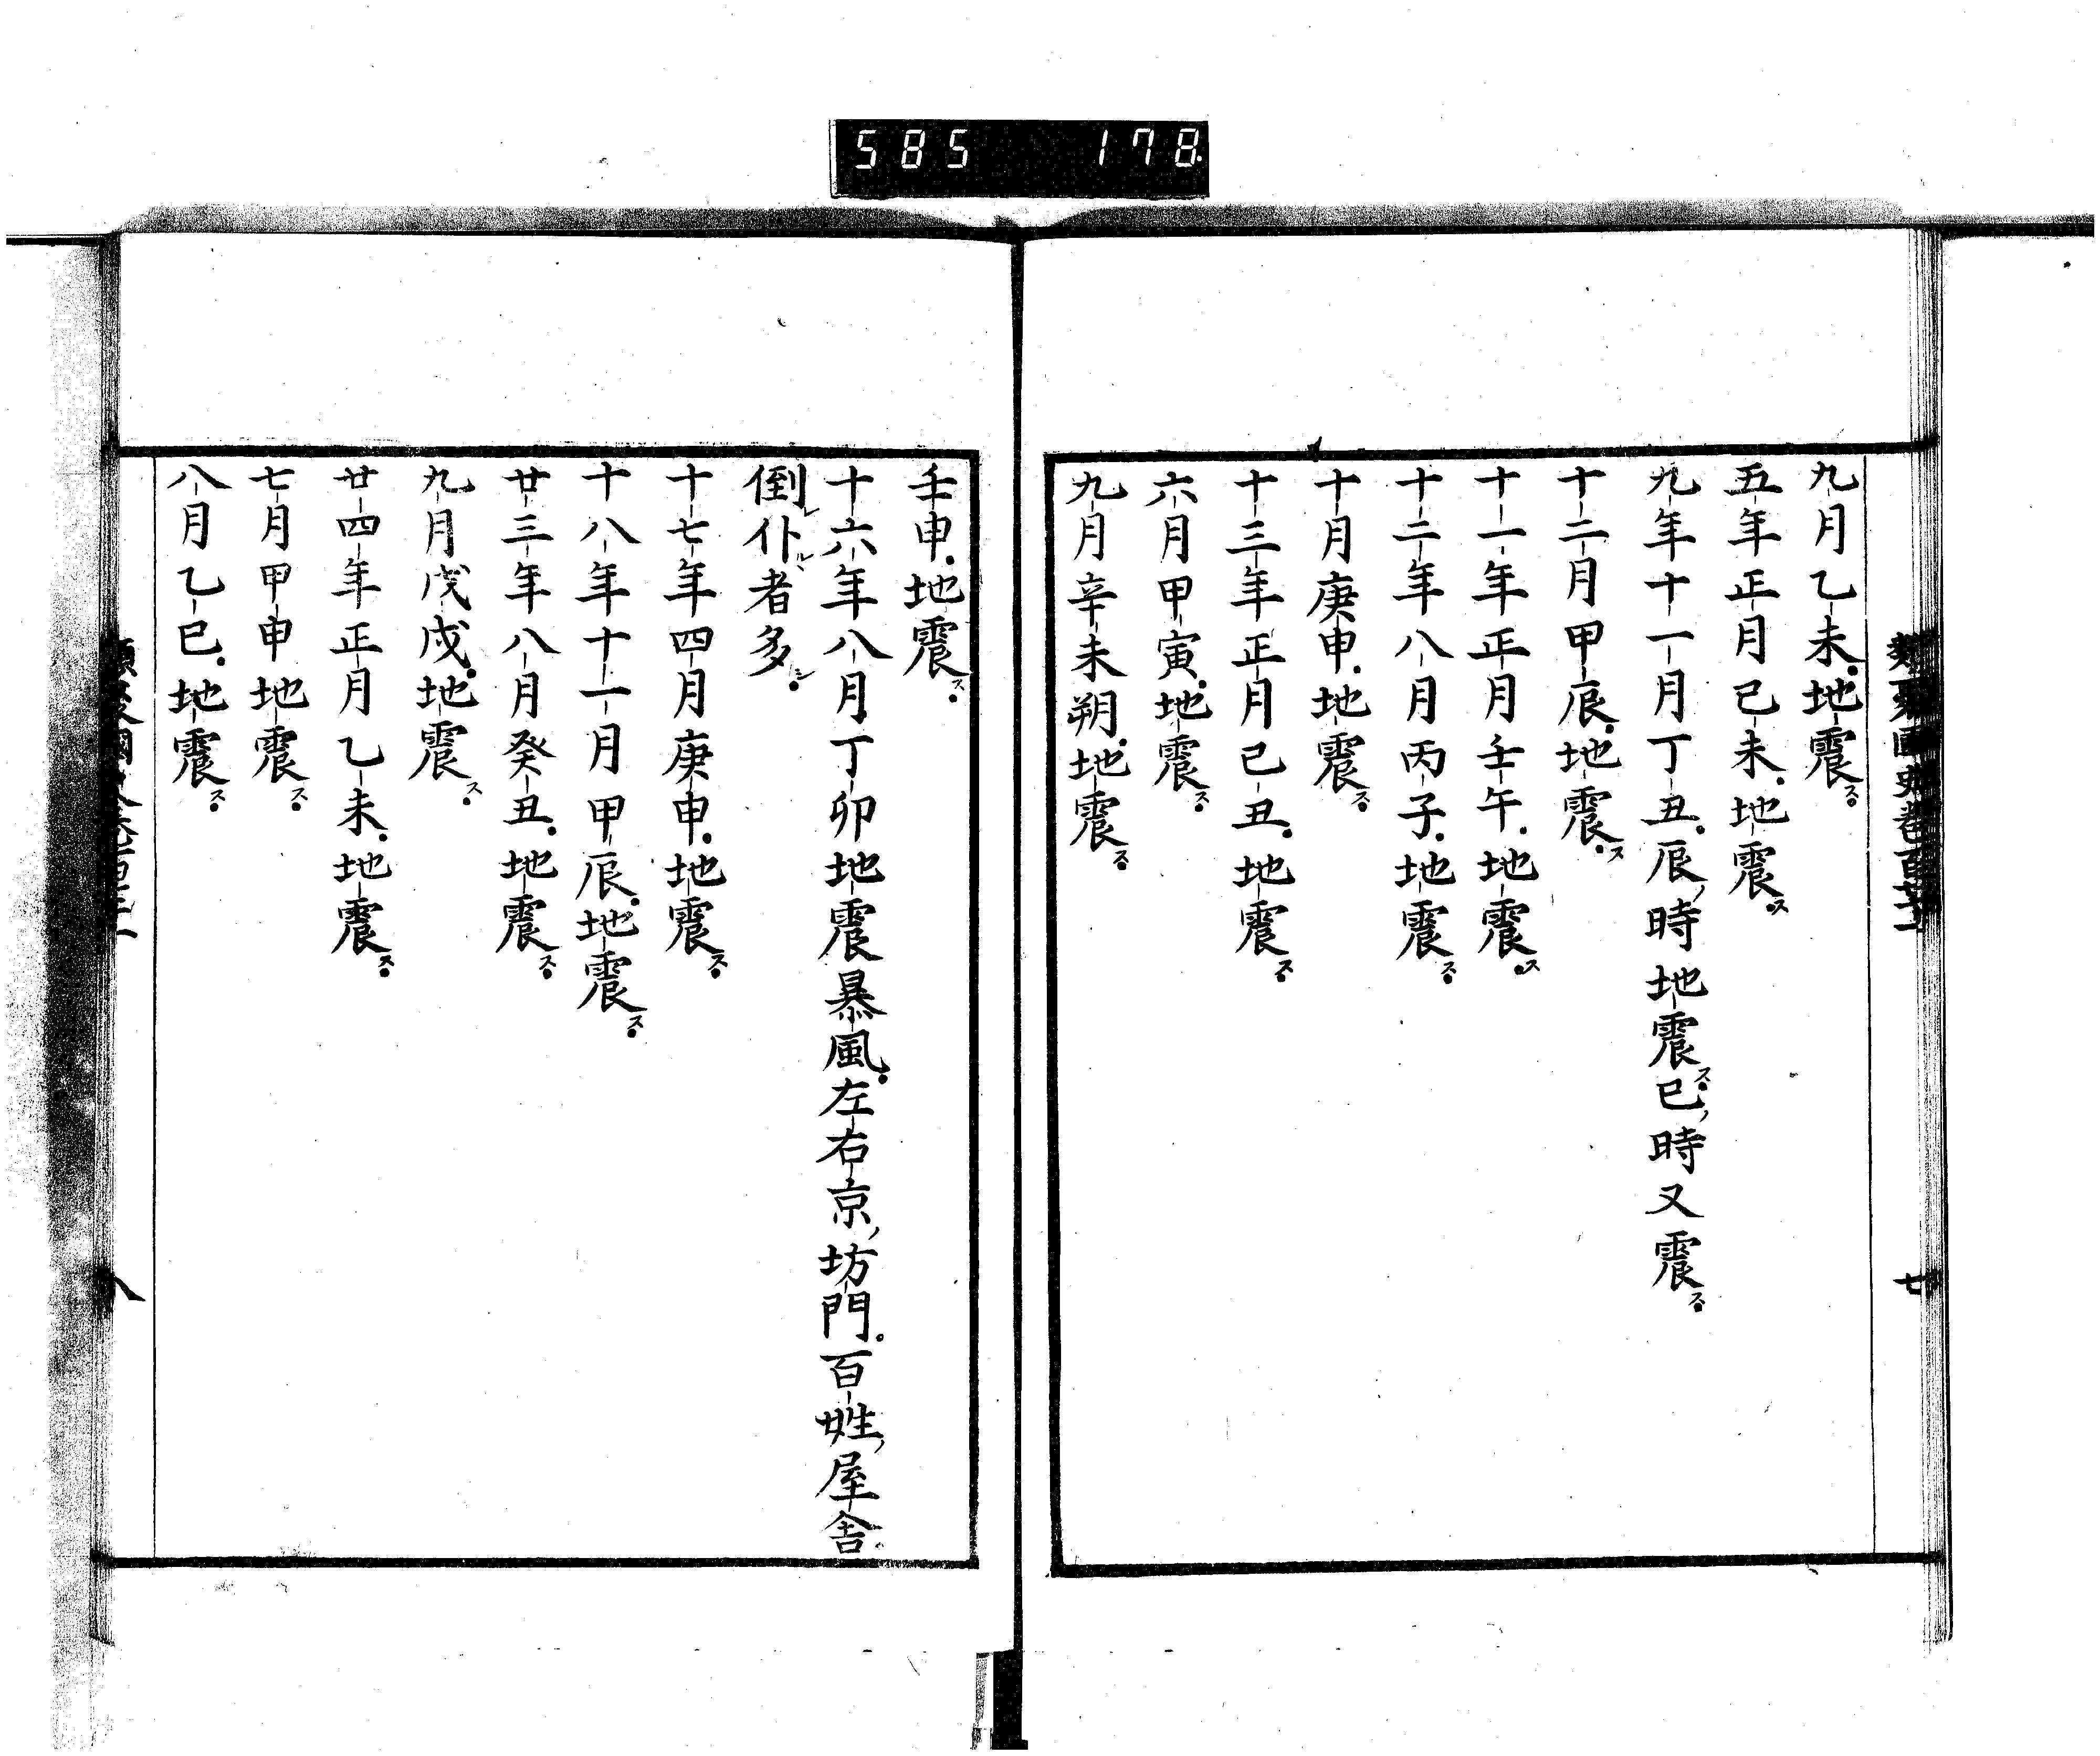 585 178
九月乙未地震ス
五年正月己未地震ス
九年十一月丁丑辰時地震ス巳時又震ス
十二月甲辰地震ス
十一年正月壬午地震ス
十二年八月丙子地震ス
十月庚申地震ス
十三年正月己丑地震ス
六月甲寅地震ス
九月辛未朔地震ス
七
壬申地震ス
十六年八月丁卯地震暴風左右京坊門百姓屋舎
倒レ仆ルヽ者多シ
十七年四月庚申地震ス
十八年十一月甲辰地震ス
廿三年八月癸丑地震ス
九月戊戌地震ス
廿四年正月乙未地震ス
七月甲申地震ス
八月乙巳地震ス
八